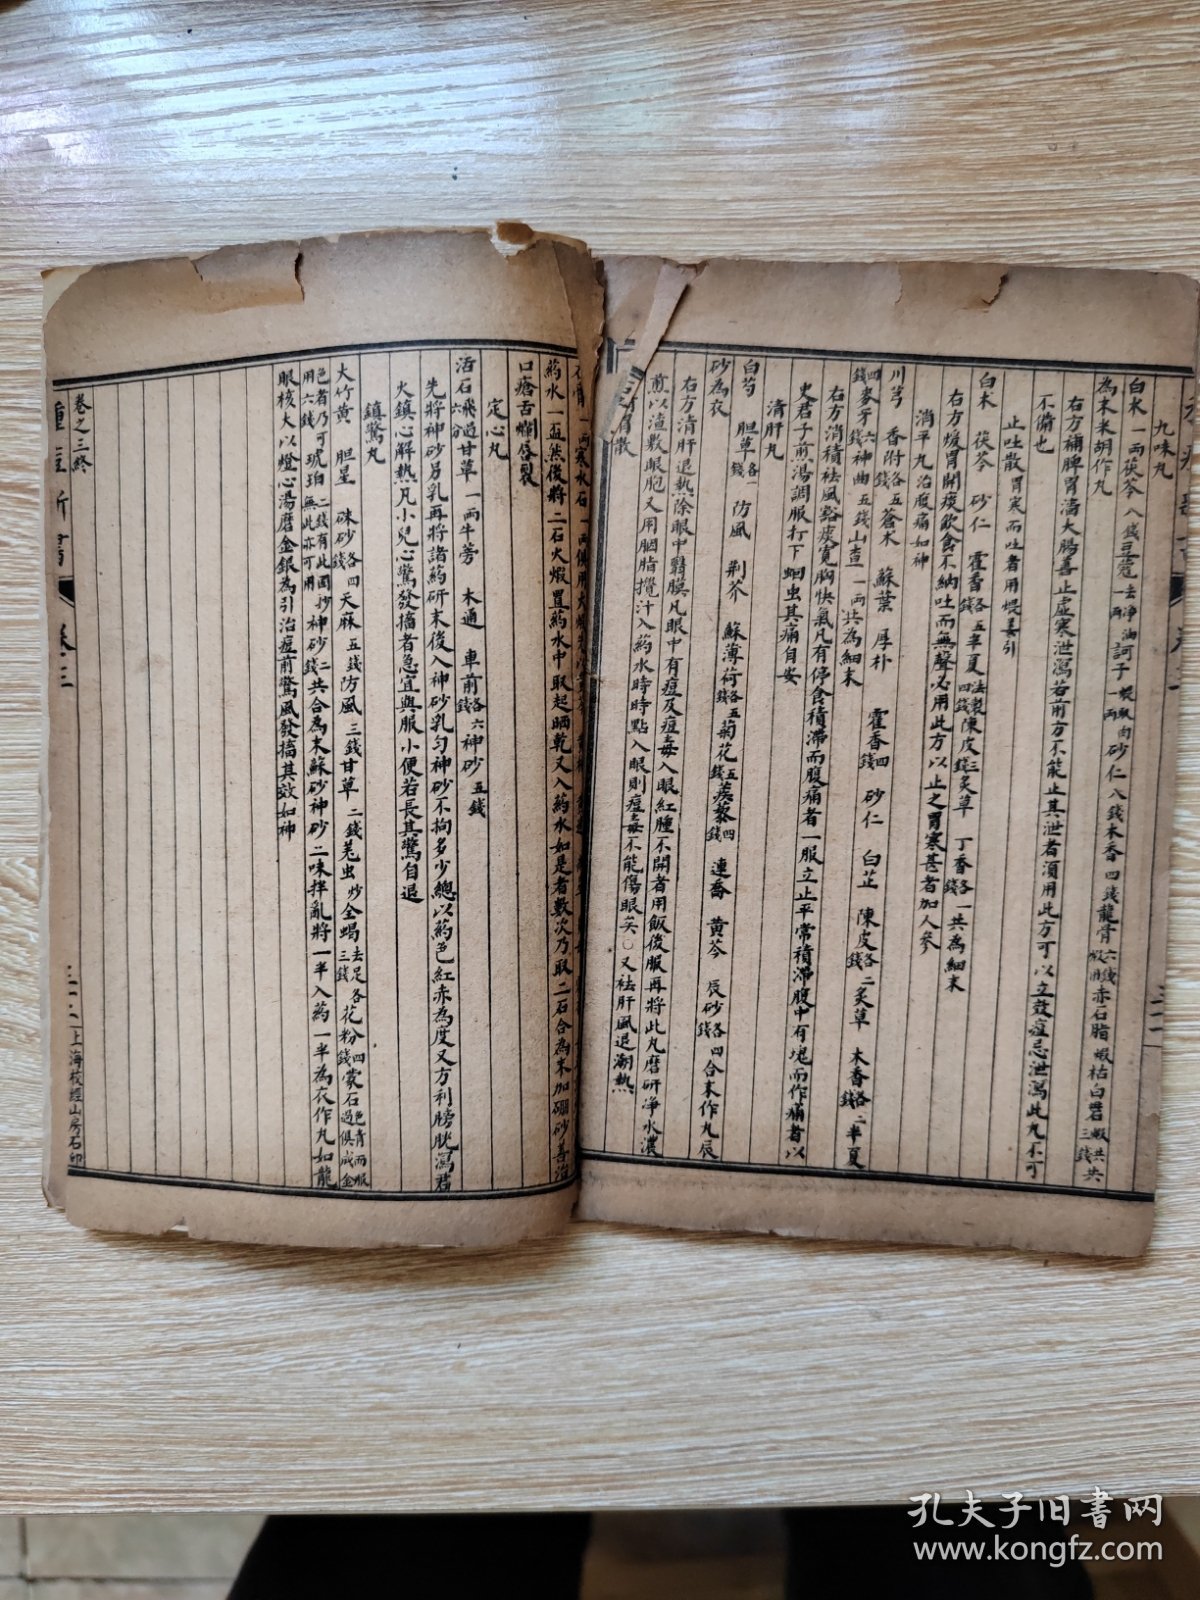 九味丸
白朮一兩茯苓八錢荳蔻一兩去淨油訶子一兩煨取肉砂仁八錢木香四錢龍骨六錢煅用赤石脂煅枯白礬煅共三錢共
為末米胡作丸
右方補脾胃濇大腸善止虛寒泄瀉若前方不能止其泄者須用此方可以立效痘忌泄瀉此丸不可
不備也
止吐散胃寒而吐者用煨姜引
白朮 茯苓 砂仁 霍香各五錢半夏法製四錢陳皮三錢炙草 丁香各一錢共為細末
右方煖胃開痰飲食不納吐而無聲必用此方以止之胃寒甚者加人參
消平丸治腹痛如神
川芎 香附各五錢蒼朮 蘇葉 厚朴 霍香四錢 砂仁 白芷 陳皮各二錢炙草 木香各二錢半夏
四錢麥牙六錢神曲五錢山查一兩共為細末
右方消積祛風豁痰寬胸快氣凡有停食積滯而腹痛者一服立止平常積滯腹中有塊而作痛者以
史君子煎湯調服打下蛔虫其痛自安
清肝丸
白芍 胆草各一錢 防風 荆芥 蘇薄荷各五錢菊花五錢蒺藜四錢 連喬 黄芩 辰砂各四錢合末作丸辰
砂為衣
右方清肝退熱除眼中翳膜凡眼中有痘及痘毒入眼紅腫不開者用飯後服再將此丸磨研淨水濃
煎以渣敷眼胞又用胭脂攪汁入葯水時時點入眼則痘毒不能傷眼矣○又祛肝風退潮熱
葯水一盃然後將二石火煅置葯水中取起晒乾又入葯水如是者數次乃取二石合為末加硼砂善治
口瘡舌爛唇裂
定心丸
活石飛過六分甘草一兩牛蒡 木通 車前各六錢神砂五錢
先將神砂另乳再將諸葯研末後入神砂乳勻神砂不拘多少總以葯色紅赤為度又方利膀胱瀉君
火鎮心解熱凡小兒心驚發搐者急宜與服小便若長其驚自退
鎮驚丸
大竹黄 胆星 硃砂各四錢天麻五錢防風三錢甘草二錢羗虫炒全蝎去足各三錢花粉四錢蒙石色青而煅過俱成金
色者乃可用六錢琥珀二錢有此固妙無此亦可用神砂二錢共合為末蘇砂神砂二味拌亂將一半入葯一半為衣作丸如龍
眼核大以燈心湯磨金銀為引治痘前驚風發搐其效如神
卷之三終
卷三
上海校經山房石印
孔夫子旧书网
www.kongfz.com